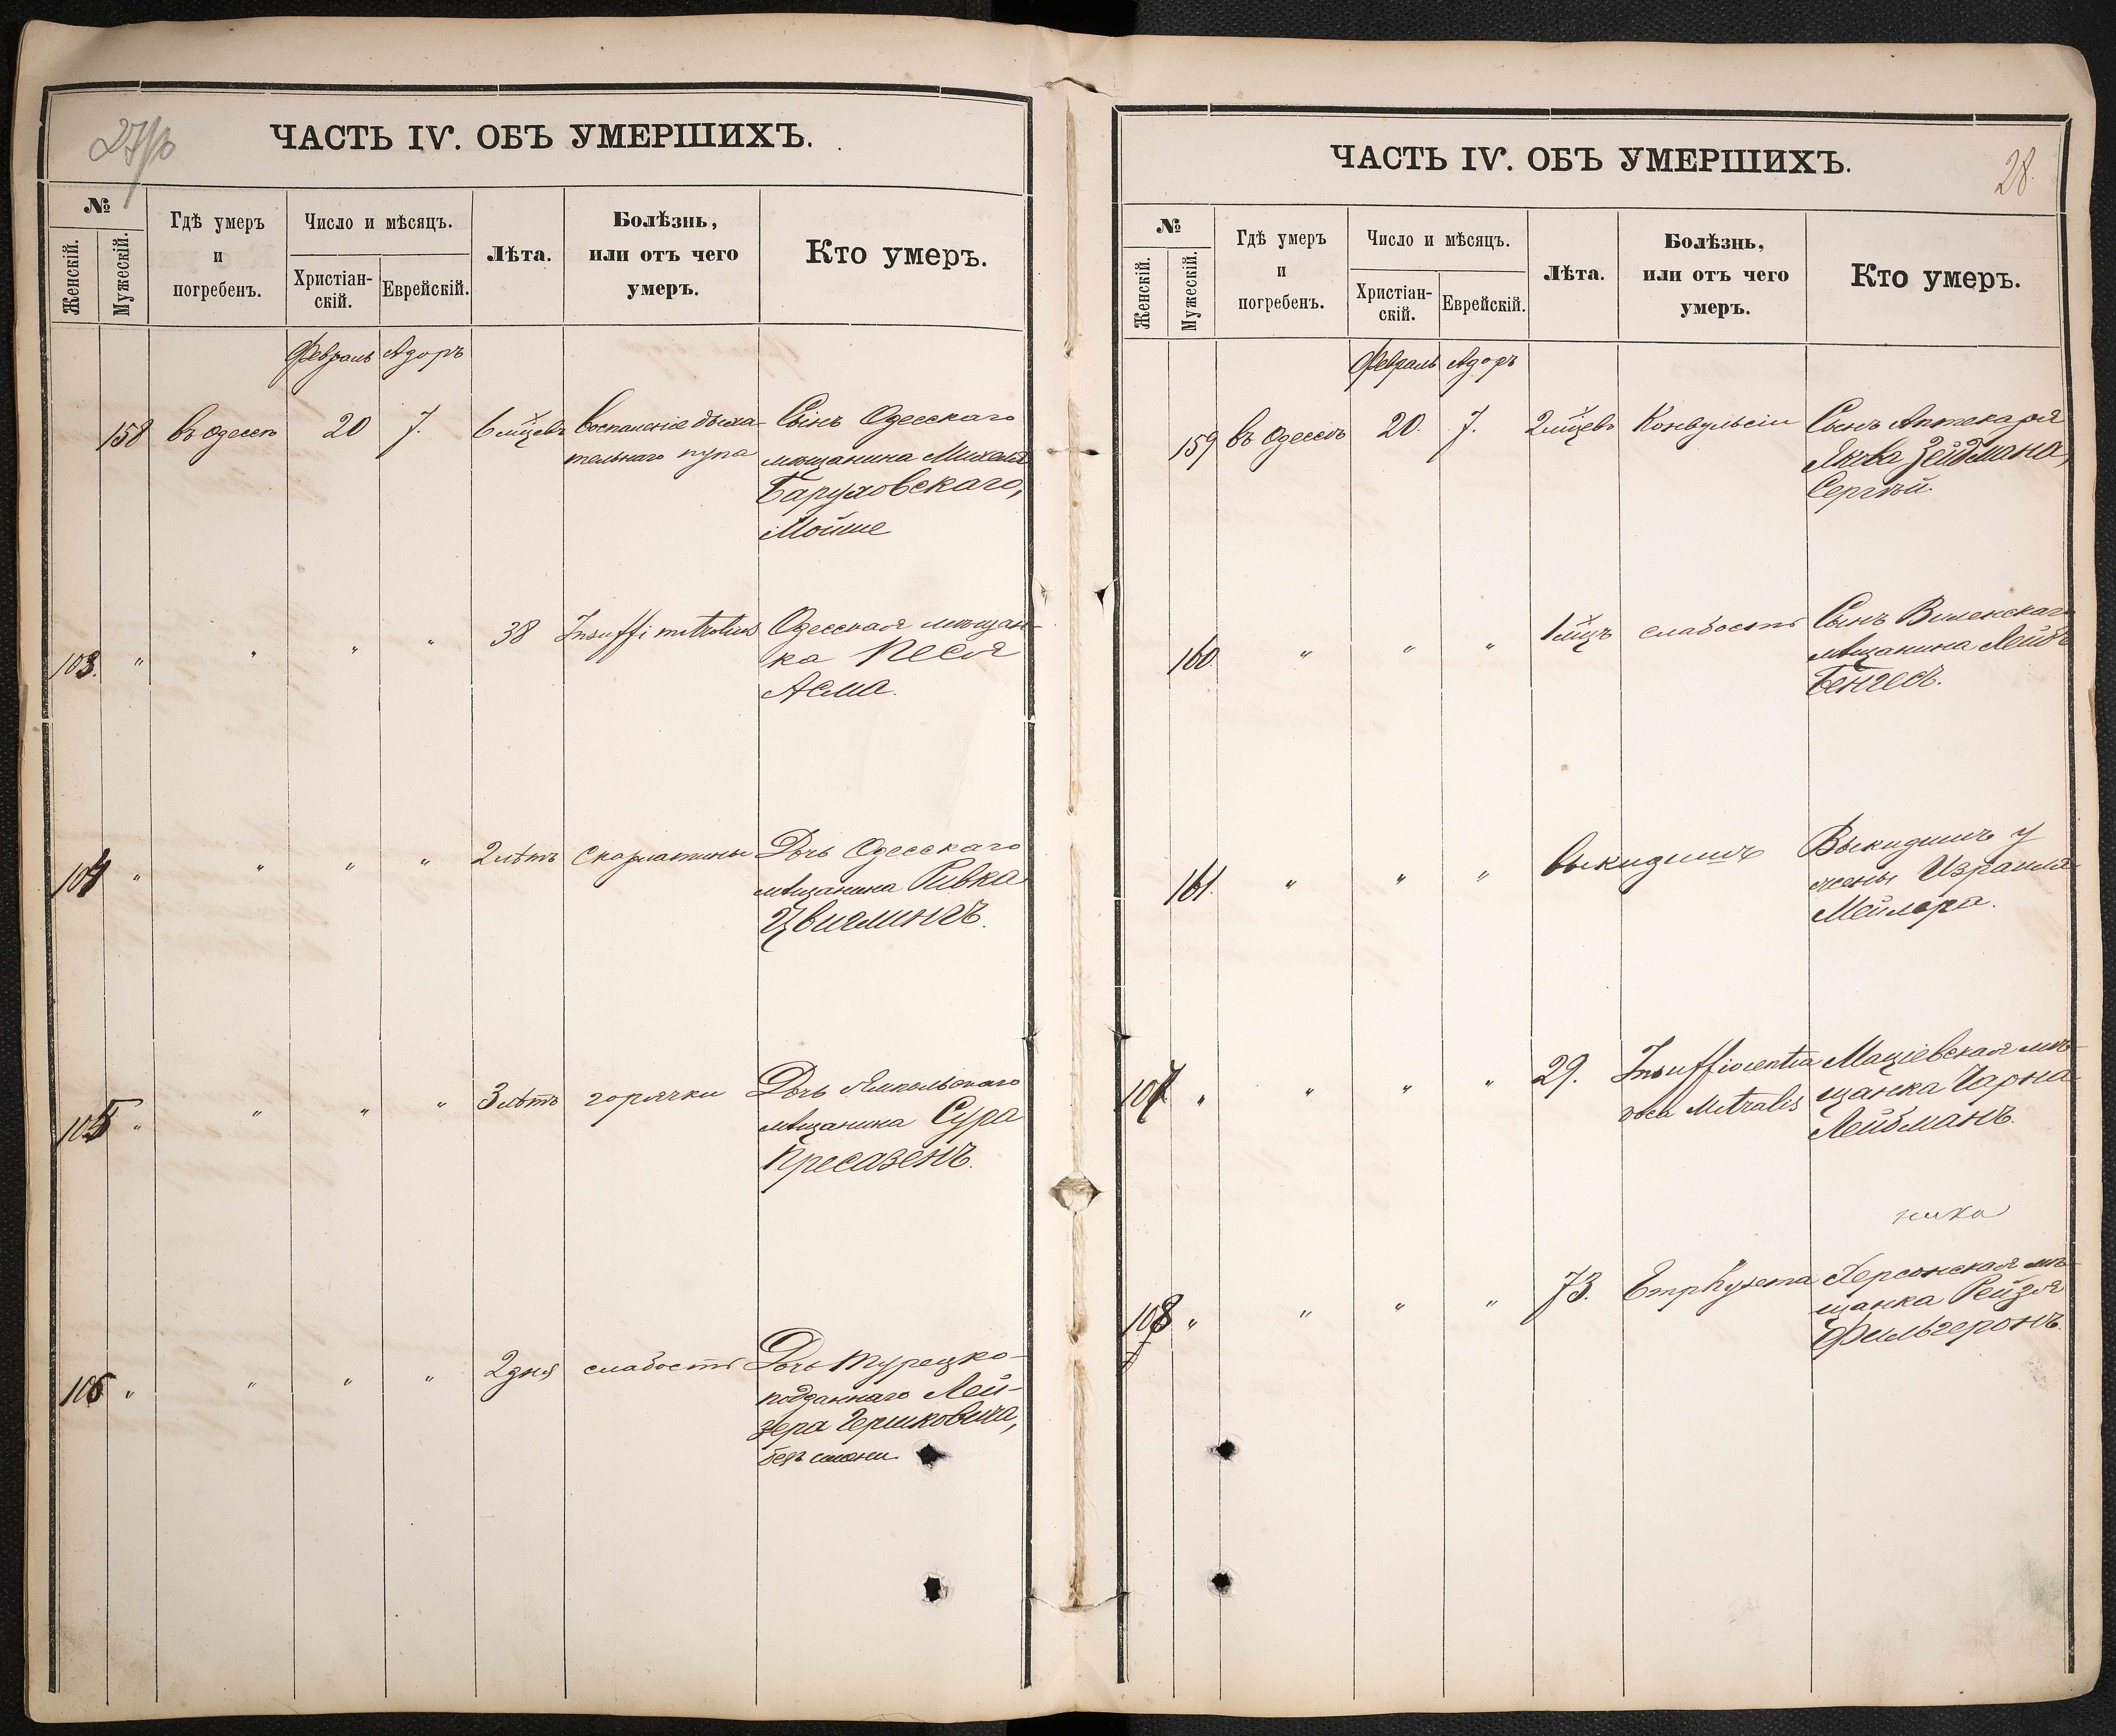 27/16
ЧАСТЬ IV. ОБЪ УМЕРШИХЪ.
№
Женскій.
Мужескій.
Гдѣ умеръ
и
погребенъ.
Число и мѣсяцъ.
Христіан-
скій.
Еврейскій.
Лѣта.
Болѣзнь,
или отъ чего
умеръ.
Кто умеръ.
Февраль Адоръ
158 въ Одессѣ 20 7. 6 мѣцевъ Воспаленіе дыха- Сынъ Одесскаго
тельнаго пути мѣщанина Михеля
Баруховскаго,
Мойше
103. " " " " 38 Insuffi mitralis Одесская мѣщан-
ка Песя
Асма.
104 " " " " 2 лѣтъ Скарлатины Дочь Одесскаго
мѣщанина Ривка
Цвиглингъ.
105 " " " " 3 лѣтъ горячки Дочь Ямпольскаго
мѣщанина Сура
Кресазенъ.
106 " " " " 2 дня слабость Дочь Турецко-
подданнаго Лей-
зера Гершковича,
безъ имени
ЧАСТЬ IV. ОБЪ УМЕРШИХЪ.
28.
№
Женскій.
Мужескій.
Гдѣ умеръ
и
погребенъ.
Число и мѣсяцъ.
Христіан-
скій.
Еврейскій.
Лѣта.
Болѣзнь,
или отъ чего
умеръ.
Кто умеръ.
Февраль Адоръ
159 въ Одессѣ 20. 7. 2 мѣцевъ Конвульсіи Сынъ Аптекаря
Якова Зейдмана,
Сергѣй.
160. " " " 1 мѣцъ слабость Сынъ Виленскаго
мѣщанина Лейбъ
Бенгесъ.
161. " " " выкидышъ Выкидышъ у
жены Израиля
Мейлера.
107 " " " " 29. Insufficientia Маціевская мѣ-
Mitralis щанка Чарна
Лейбманъ.
108 " " " " 73. Emphysema Херсонская мѣ-
щанка Рейзя
Фильгеронъ.